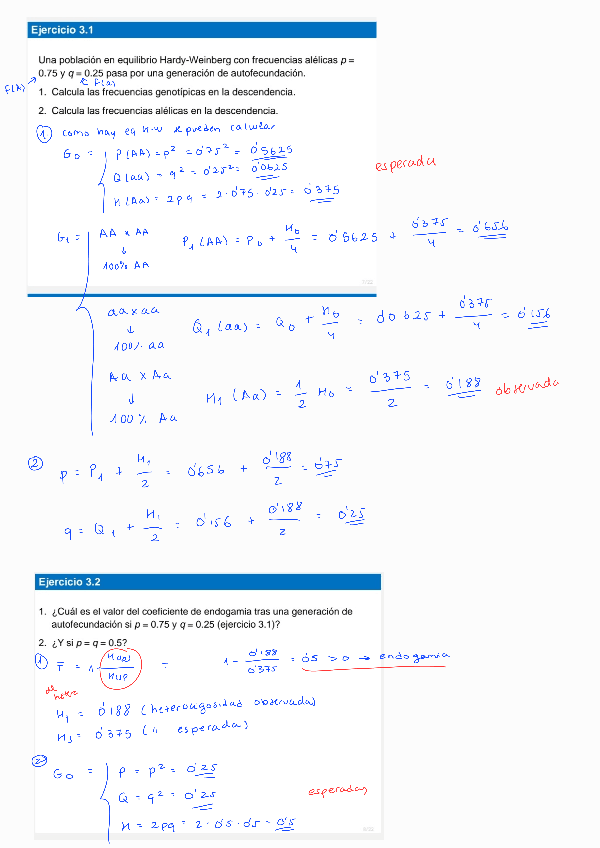 Ejercicio 3.1
Una población en equilibrio Hardy-Weinberg con frecuencias alélicas p =
0.75 y q = 0.25 pasa por una generación de autofecundación.
f(A)
f(a)
1. Calcula las frecuencias genotípicas en la descendencia.
2. Calcula las frecuencias alélicas en la descendencia.
1 como hay eq H-W se pueden calcular
G0 = P(AA) = p² = 0'75² = 0'5625
Q(aa) = q² = 0'25² = 0'0625
H(Aa) = 2pq = 2·0'75·0'25 = 0'375
esperada
G1 = AA x AA
↓
100% AA
P1(AA) = P0 + H0/4 = 0'5625 + 0'375/4 = 0'656
aa x aa
↓
100% aa
Q1(aa) = Q0 + H0/4 = 0'0625 + 0'375/4 = 0'156
Aa x Aa
↓
100% Aa
H1(Aa) = 1/2 H0 = 0'375/2 = 0'188 observada
2 p = P1 + H1/2 = 0'656 + 0'188/2 = 0'75
q = Q1 + H1/2 = 0'156 + 0'188/2 = 0'25
Ejercicio 3.2
1. ¿Cuál es el valor del coeficiente de endogamia tras una generación de
autofecundación si p = 0.75 y q = 0.25 (ejercicio 3.1)?
2. ¿Y si p = q = 0.5?
1 F = 1 - = 1 - 0'188/0'375 = 0'5 > 0 → endogamia
H1 = 0'188 (heterozigosidad observada)
= 0'375 (" esperada)
2 G0 = P = p² = 0'25
Q = q² = 0'25
H = 2pq = 2·0'5·0'5 = 0'5
esperadas